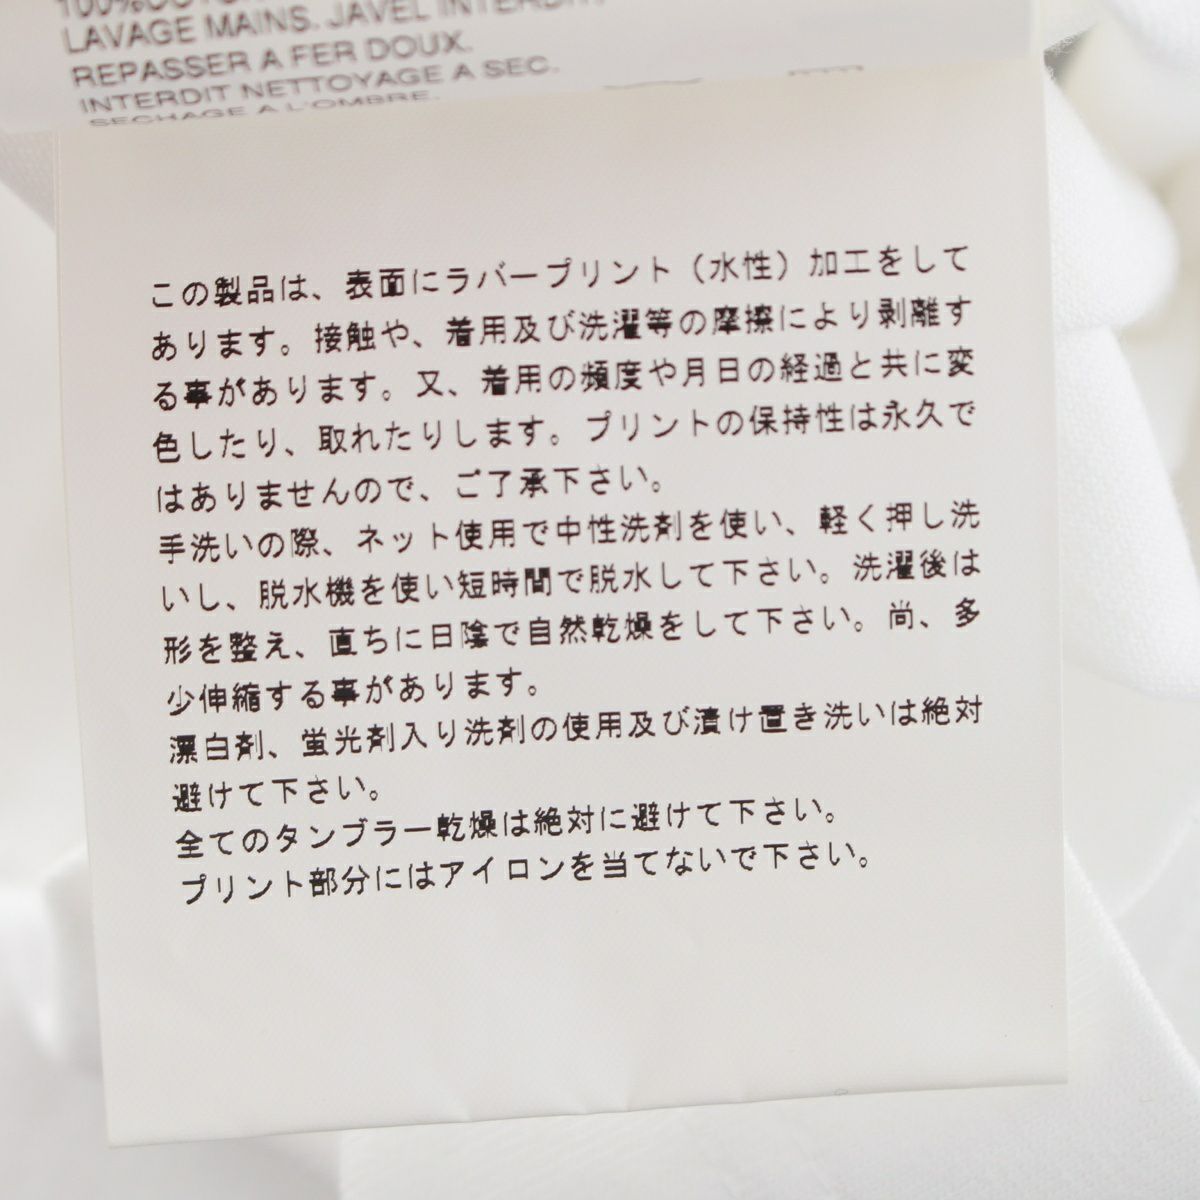 LAVAGE MAINS. JAVEL INTERDIT.
REPASSER A FER DOUX.
INTERDIT NETTOYAGE A SEC.
SECHAGE A L'OMBRE.
この製品は、表面にラバープリント（水性）加工をして
あります。接触や、着用及び洗濯等の摩擦により剥離す
る事があります。又、着用の頻度や月日の経過と共に変
色したり、取れたりします。プリントの保持性は永久で
はありませんので、ご了承下さい。
手洗いの際、ネット使用で中性洗剤を使い、軽く押し洗
いし、脱水機を使い短時間で脱水して下さい。洗濯後は
形を整え、直ちに日陰で自然乾燥をして下さい。尚、多
少伸縮する事があります。
漂白剤、蛍光剤入り洗剤の使用及び漬け置き洗いは絶対
避けて下さい。
全てのタンブラー乾燥は絶対に避けて下さい。
プリント部分にはアイロンを当てないで下さい。